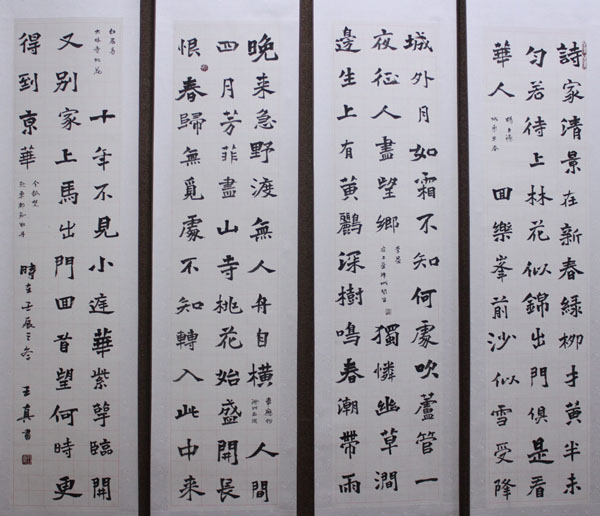 詩家清景在新春綠柳才黃半未
勻若待上林花似錦出門俱是看
華人
楊巨源
城東早春
回樂峯前沙似雪受降
城外月如霜不知何處吹蘆管一
夜征人盡望鄉
李益
夜上受降城聞笛
獨憐幽草澗
邊生上有黃鸝深樹鳴春潮帶雨
晚来急野渡無人舟自橫
韋應物
滁州西澗
人間
四月芳菲盡山寺桃花始盛開長
恨春歸無覓處不知轉入此中来
白居易
大林寺桃花
十年不見小庭華紫萼臨開
又别家上馬出門回首望何時更
得到京華
令狐楚
赴東都別牡丹
時在壬辰之冬
王真書